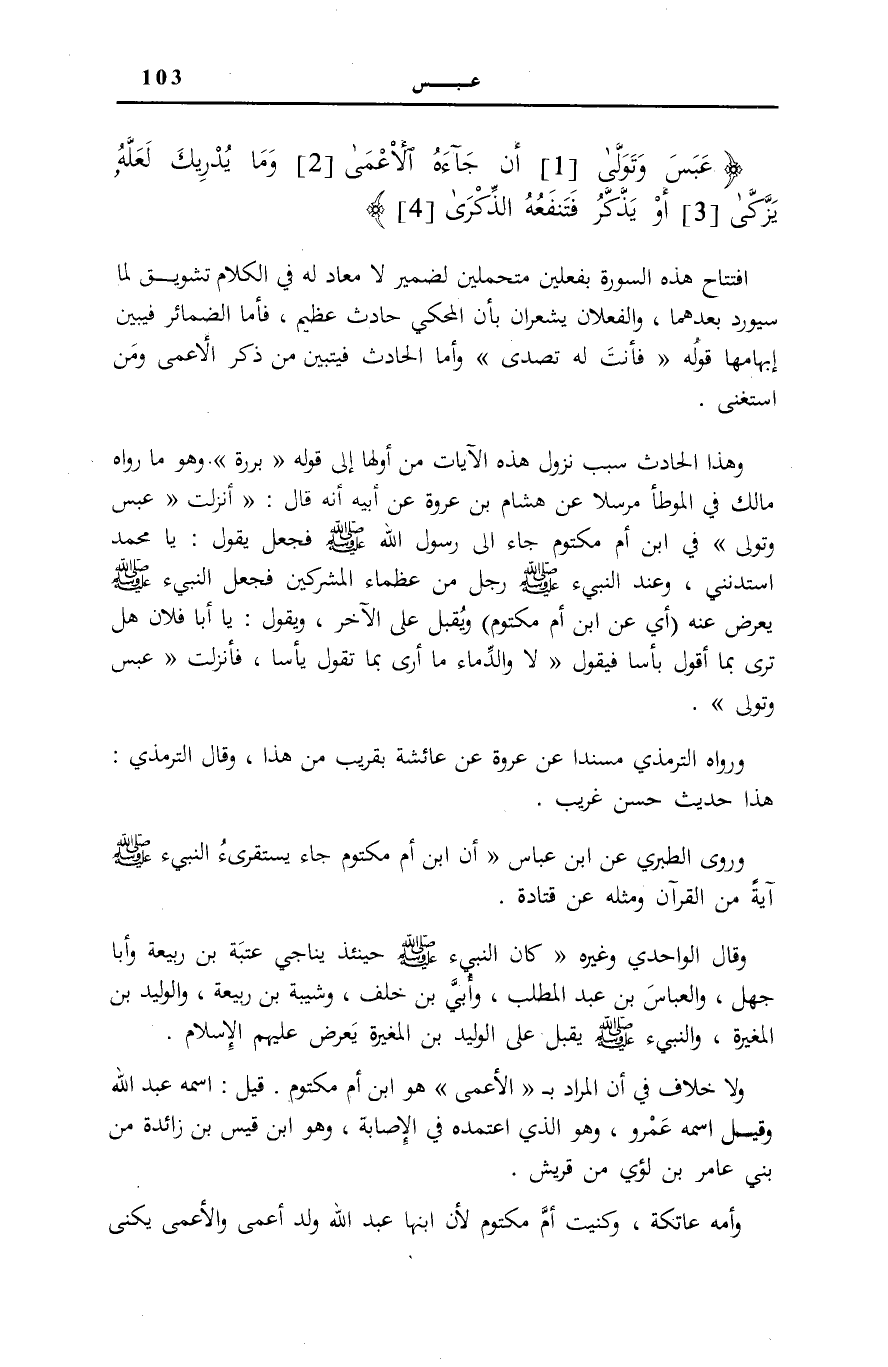 عبـــــس 103
﴿ عَبَسَ وَتَوَلَّىٰ [1] أَن جَآءَهُ ٱلْأَعْمَىٰ [2] وَمَا يُدْرِيكَ لَعَلَّهُۥ
يَزَّكَّىٰ [3] أَوْ يَذَّكَّرُ فَتَنفَعُهُ الذِّكْرَىٰ [4] ﴾
افتتاح هذه السورة بفعلين متحملين لضمير لا معاد له في الكلام تشويـــق لما
سيورد بعدهما ، والفعلان يشعران بأن المحكي حادث عظيم ، فأما الضمائر فيبين
إبهامها قولُه « فأنتَ له تصدى » وأما الحادث فيتبين من ذكر الأعمى ومَن
استغنى .
وهذا الحادث سبب نزول هذه الآيات من أولها إلى قوله « بررة ».وهو ما رواه
مالك في الموطأ مرسلا عن هشام بن عروة عن أبيه أنه قال : « أنزلت « عبس
وتولى » في ابن أم مكتوم جاء الى رسول الله ﷺ فجعل يقول : يا محمد
استدنني ، وعند النبيء ﷺ رجل من عظماء المشركين فجعل النبيء ﷺ
يعرض عنه (أي عن ابن أم مكتوم) ويُقبل على الآخر ، ويقول : يا أبا فلان هل
ترى بما أقول بأسا فيقول « لا والدِّماء ما أرى بما تقول يأسا ، فأنزلت « عبس
وتولى » .
ورواه الترمذي مسندا عن عروة عن عائشة بقريب من هذا ، وقال الترمذي :
هذا حديث حسن غريب .
وروى الطبري عن ابن عباس « أن ابن أم مكتوم جاء يستقرىءُ النبيء ﷺ
آيةً من القرآن ومثله عن قتادة .
وقال الواحدي وغيره « كان النبيء ﷺ حينئذ يناجي عتبَة بن ربيعة وأبا
جهل ، والعباسَ بن عبد المطلب ، وأُبيَّ بن خلف ، وشيبة بن ربيعة ، والوليد بن
المغيرة ، والنبيء ﷺ يقبل على الوليد بن المغيرة يَعرض عليهم الإِسلام .
ولا خلاف في أن المراد بـ « الأعمى » هو ابن أم مكتوم . قيل : اسمه عبد الله
وقيـل اسمه عَمْرو ، وهو الذي اعتمده في الإِصابة ، وهو ابن قيس بن زائدة من
بني عامر بن لؤي من قريش .
وأمه عاتكة ، وكنيت أمَّ مكتوم لأن ابنها عبد الله ولد أعمى والأعمى يكنى